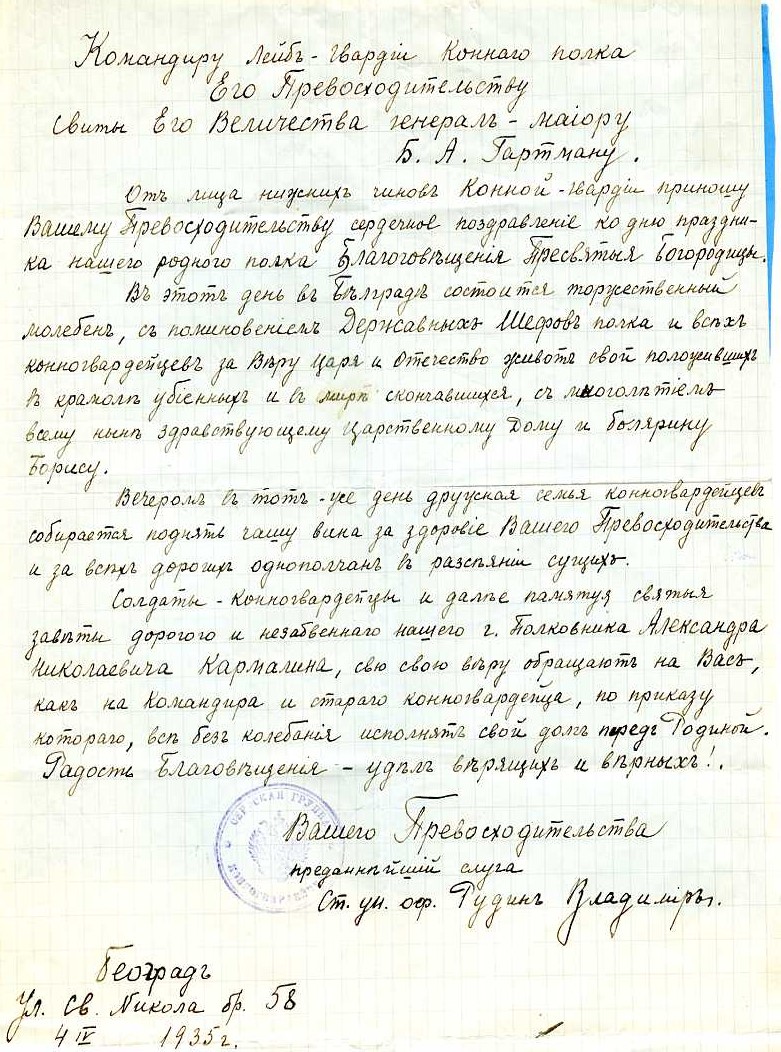 Командиру Лейбъ-Гвардіи Коннаго полка
Его Превосходительству
Свиты Его Величества генералъ-маіору
Б. А. Гартману.
Отъ лица нижнихъ чиновъ Конной-Гвардіи приношу
Вашему Превосходительству сердечное поздравленіе ко дню праздни-
ка нашего родного полка Благовѣщенія Пресвятыя Богородицы.
Въ этотъ день въ Бѣлградѣ состоится торжественный
молебен, съ поминовеніемъ Державныхъ Шефовъ полка и всѣхъ
конногвардейцевъ за Вѣру Царя и Отечество животъ свой положившихъ
въ крамолѣ убіенныхъ и въ мирѣ скончавшихся, съ многолѣтіемъ
всему нынѣ здравствующему Царственному Дому и болярину
Борису.
Вечеромъ въ тотъ-же день дружная семья конногвардейцевъ
собирается поднять чашу вина за здоровіе Вашего Превосходительства
и за всѣхъ дорогихъ однополчанъ въ разсѣяніи сущихъ.
Солдаты-конногвардейцы и далѣе памятуя святыя
завѣты дорогого и незабвеннаго нашего г. Полковника Александра
Николаевича Кармалина, свю свою вѣру обращаютъ на Васъ,
какъ на Командира и стараго конногвардейца, по приказу
котораго, всѣ безъ колебанія исполнятъ свой долгъ передъ Родиной.
Радость Благовѣщенія - удѣлъ вѣрящихъ и вѣрныхъ!.
Вашего Превосходительства
преданнѣйшій слуга
Ст. ун. оф. Рудинъ Владиміръ.
Београдъ
Ул. Св. Никола бр. 58
4 IV 1935 г.